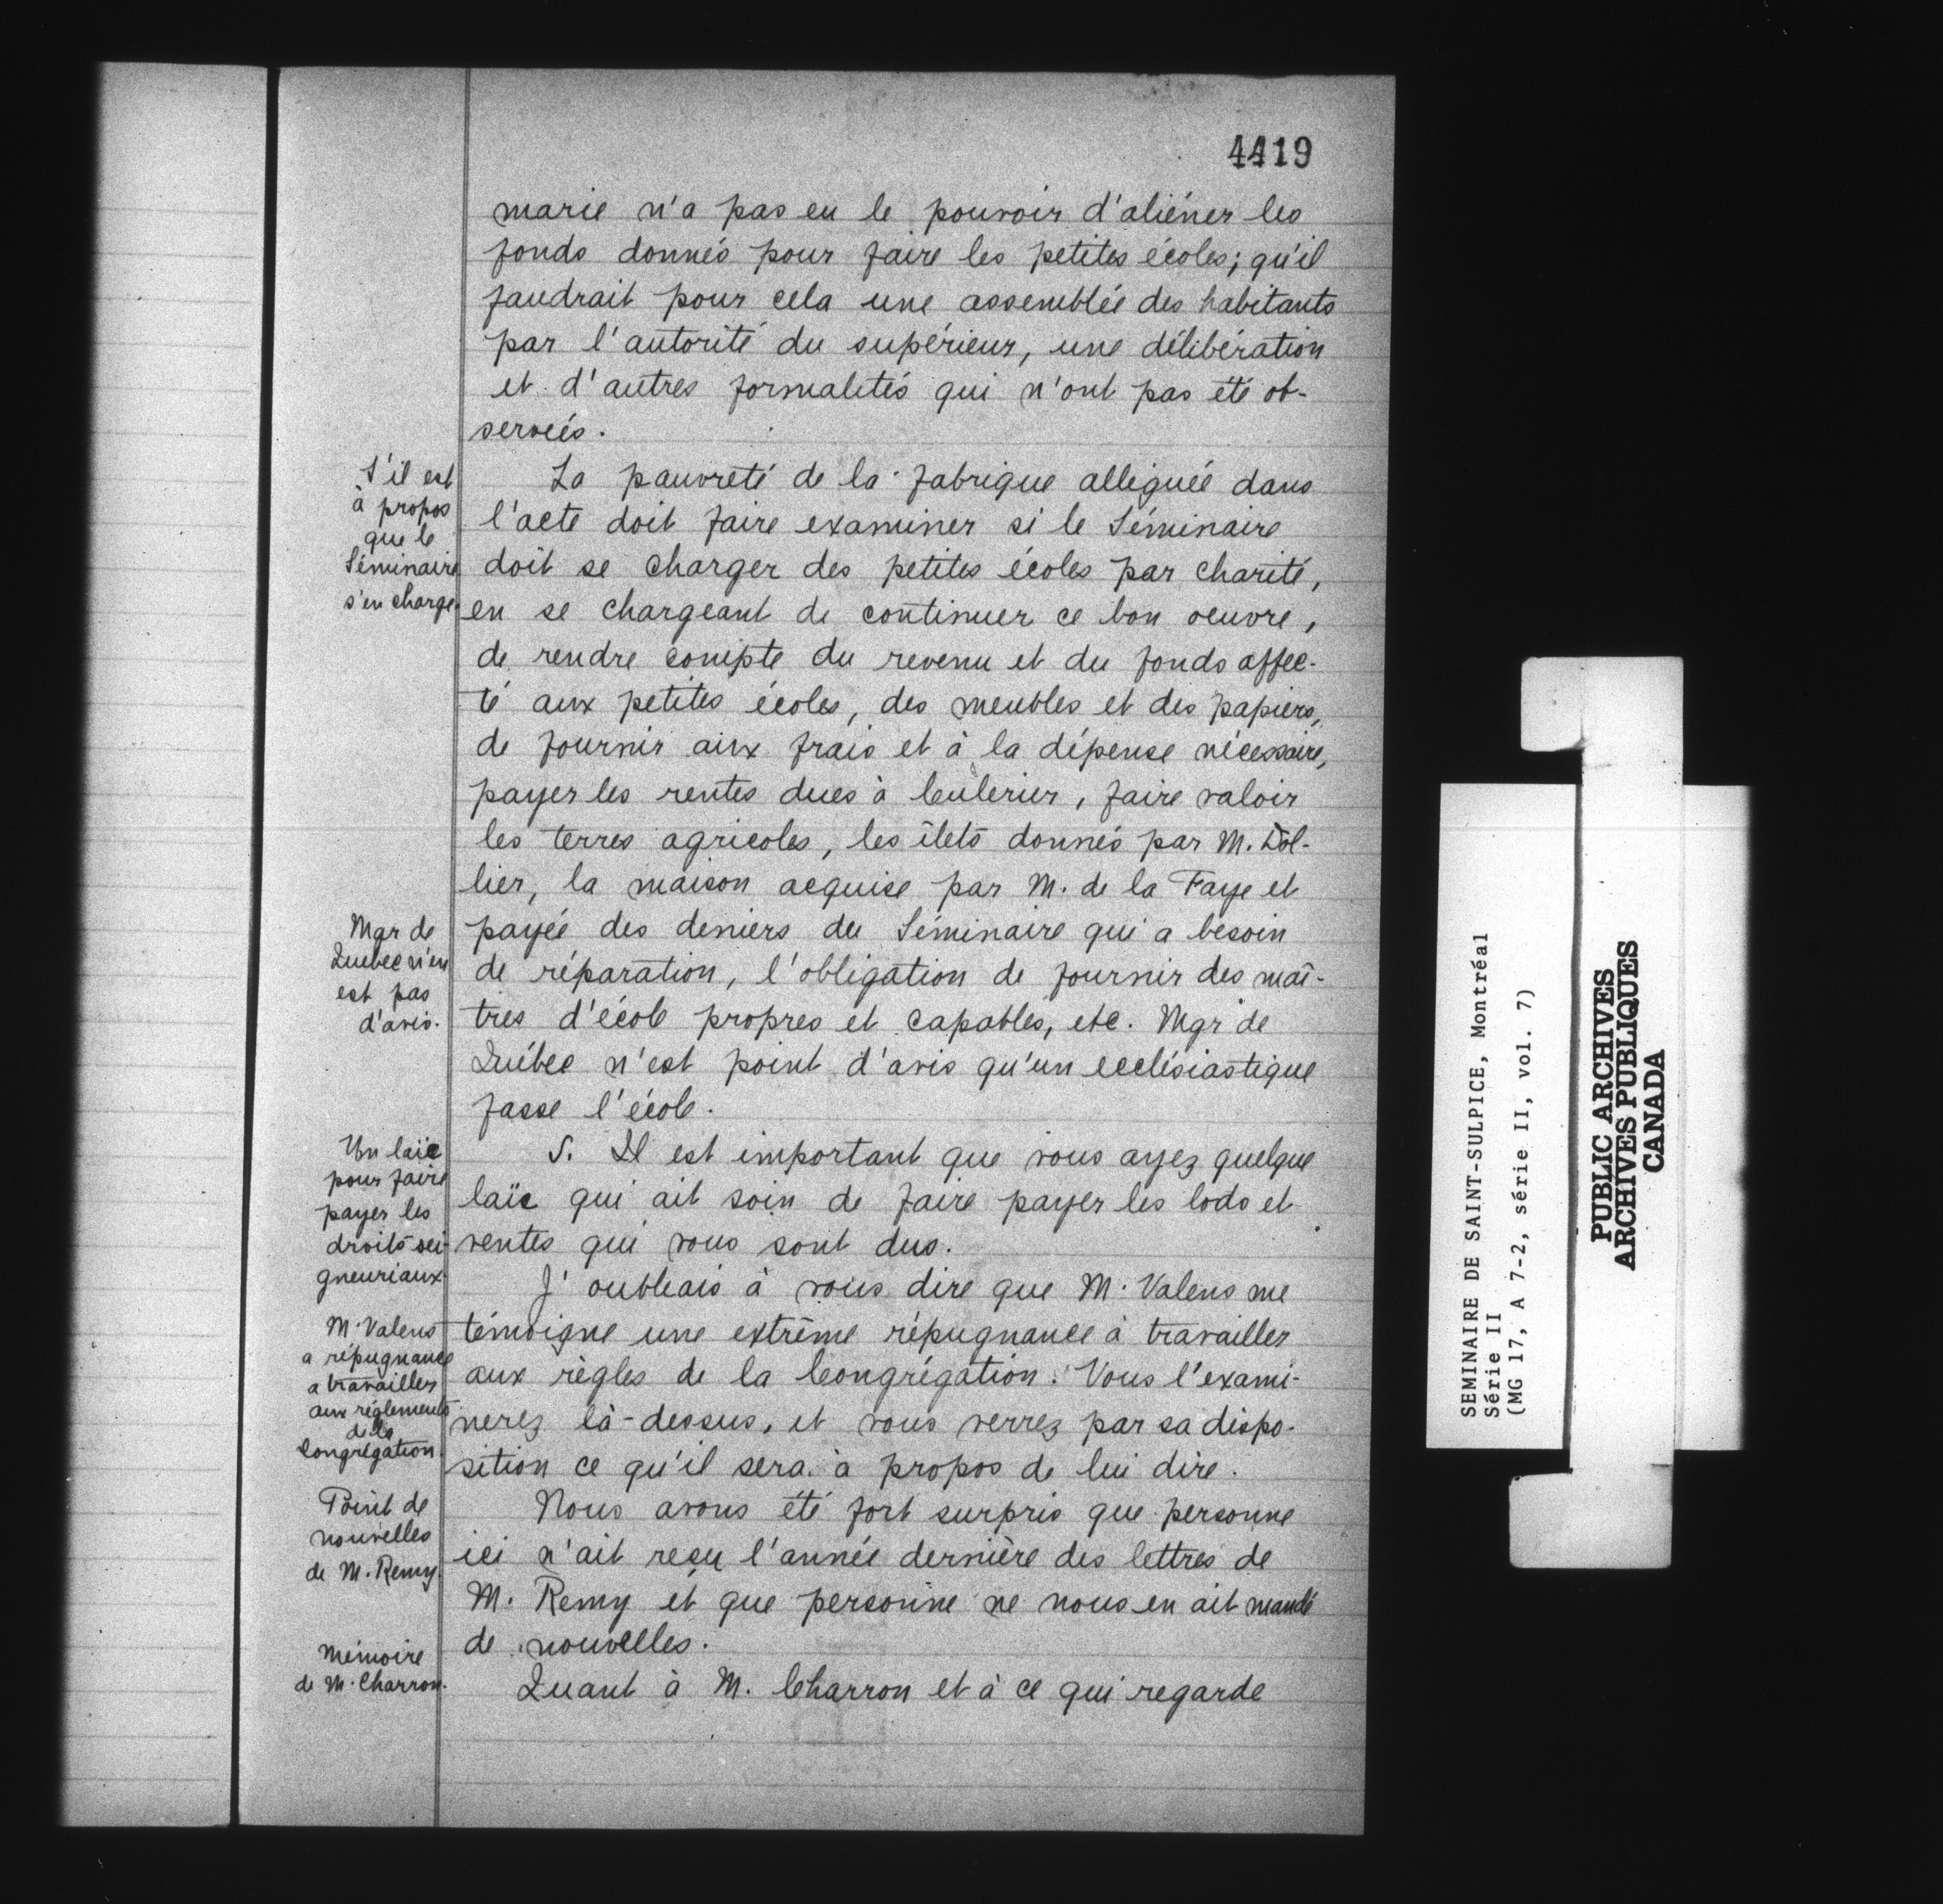 4419
marie n'a pas eu le pouvoir d'aliéner les
fonds donnés pour faire les petites écoles; qu'il
faudrait pour cela une assemblée des habitants
par l'autorité du supérieur, une délibération
et d'autres formalités qui n'ont pas été ob-
servées.
S'il est
à propos
que le
Séminaire
s'en charge.
La pauvreté de la fabrique alléguée dans
l'acte doit faire examiner si le Séminaire
doit se charger des petites écoles par charité,
en se chargeant de continuer ce bon oeuvre,
de rendre compte du revenu et du fonds affec-
té aux petites écoles, des meubles et des papiers,
de fournir aux frais et à la dépense nécessaire,
payer les rentes dues à , faire valoir
les terres agricoles, les îlets donnés par M. Dol-
lier, la maison acquise par M. de la Faye et
Mgr de
Québec n'en
est pas
d'avis.
payée des deniers du Séminaire qui a besoin
de réparation, l'obligation de fournir des maî-
tres d'école propres et capables, etc. Mgr de
Québec n'est point d'avis qu'un ecclésiastique
fasse l'école.
Un laïc
pour faire
payer les
droits sei-
gneuriaux.
S. Il est important que vous ayez quelque
laïc qui ait soin de faire payer les lods et
ventes qui vous sont dus.
M. Valens
a répugnance
a travailler
aux réglements
de la
Congrégation.
J'oubliais à vous dire que M. Valens me
témoigne une extrême répugnance à travailler
aux règles de la Congrégation. Vous l'exami-
nerez là-dessus, et vous verrez par sa dispo-
sition ce qu'il sera à propos de lui dire.
Point de
nouvelles
de M. Remy.
Nous avons été fort surpris que personne
ici n'ait reçu l'année dernière des lettres de
M. Remy et que personne ne nous en ait mandé
de nouvelles.
Mémoire
de M. Charron.
Quant à M. Charron et à ce qui regarde
SEMINAIRE DE SAINT-SULPICE, Montréal
Série II
(MG 17, A 7-2, série II, vol. 7)
PUBLIC ARCHIVES
ARCHIVES PUBLIQUES
CANADA